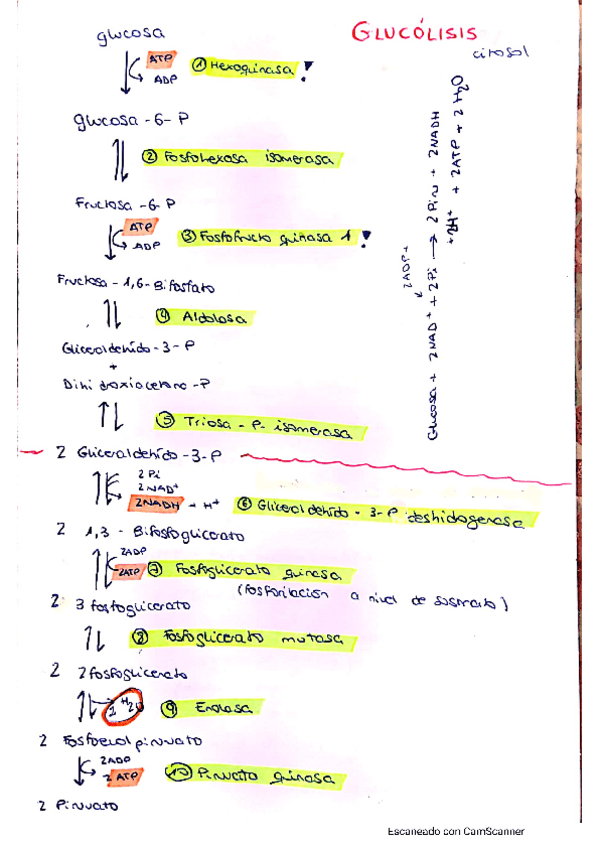 GLUCÓLISIS
citosol
glucosa
ATP
ADP
① Hexoquinasa !
glucosa - 6 - P
② Fosfohexosa isomerasa
Fructosa - 6 - P
ATP
ADP
③ Fosfofructo quinasa 1 !
Fructosa - 1,6 - Bifosfato
④ Aldolasa
Gliceraldehído - 3 - P
+
Dihidroxiacetona - P
⑤ Triosa - P - isomerasa
2 Gliceraldehído - 3 - P
2 Pi
2 NAD+
2NADH + H+
⑥ Gliceraldehído - 3 - P deshidogenasa
2 1,3 - Bifosfoglicerato
2ADP
2ATP
⑦ Fosfoglicerato quinasa
(fosforilación a nivel de sustrato)
2 3 fosfoglicerato
⑧ Fosfoglicerato mutasa
2 2fosfoglicerato
2 H2O
⑨ Enolasa
2 Fosfoenol piruvato
2ADP
2 ATP
⑩ Piruvato quinasa
2 Piruvato
2ADP +
Glucosa + 2NAD+ + 2Pi → 2Piru + 2NADH
+2H+ + 2ATP + 2H2O
Escaneado con CamScanner